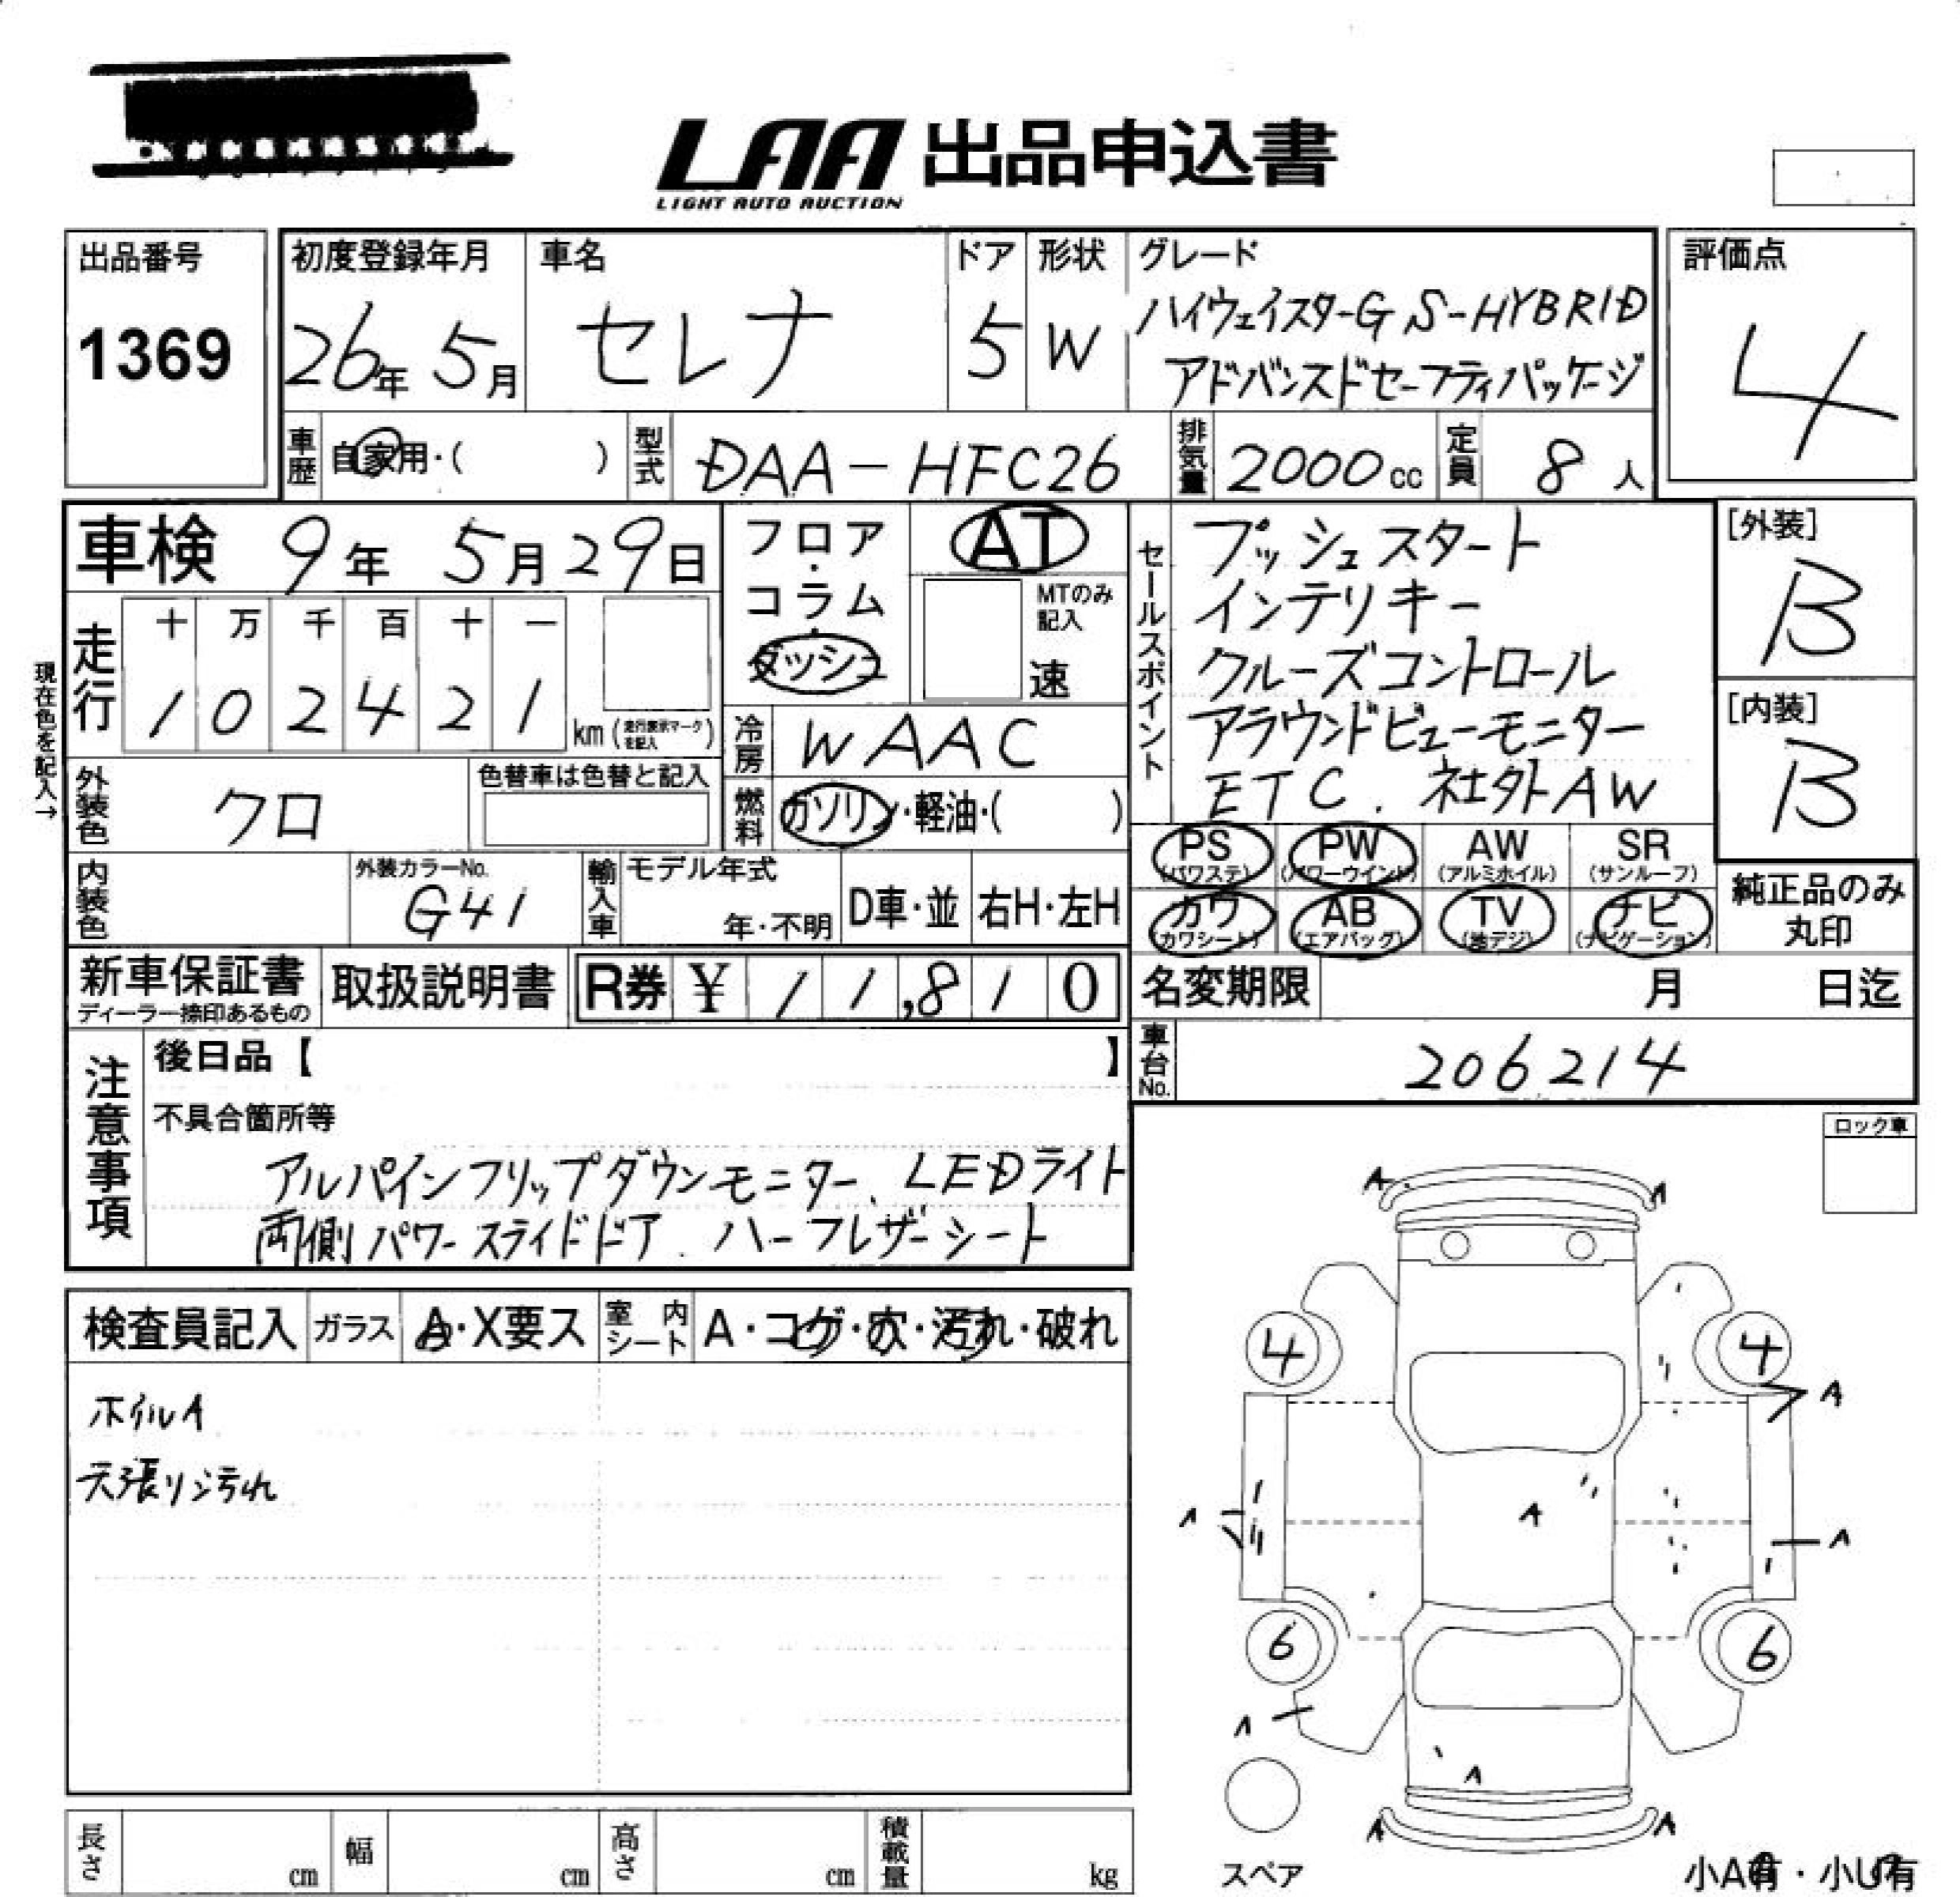 LAA 出品申込書
LIGHT AUTO AUCTION
出品番号
1369
初度登録年月
26年 5月
車名
セレナ
ドア
5
形状
W
グレード
ハイウェイスターG S-HYBRID
アドバンスドセーフティパッケージ
評価点
4
車歴 自家用・( )
型式 DAA-HFC26
排気量 2000cc
定員 8人
車検 9年 5月29日
フロア・
コラム・
ダッシュ
AT
MTのみ
記入
速
セールスポイント
プッシュスタート
インテリキー
クルーズコントロール
アラウンドビューモニター
ETC. 社外AW
[外装]
B
[内装]
B
現在色を記入→
走行
十 万 千 百 十 一
1 0 2 4 2 1 km (走行表示マークを記入)
冷房 WAAC
外装色 クロ
色替車は色替と記入
燃料 ガソリン・軽油・( )
PS (パワステ) PW (パワーウインド) AW (アルミホイル) SR (サンルーフ)
カワ (カワシート) AB (エアバッグ) TV (地デジ) ナビ (ナビゲーション)
純正品のみ
丸印
内装色
外装カラーNo.
G41
輸入車
モデル年式
年・不明
D車・並 右H・左H
新車保証書
ディーラー捺印あるもの
取扱説明書
R券 ¥ 11,810
名変期限 月 日迄
車台No. 206214
注意事項
後日品【 】
不具合箇所等
アルパインフリップダウンモニター、LEDライト
両側パワースライドドア. ハーフレザーシート
ロック車
検査員記入 ガラス A・X要ス 室内シート A・コゲ・穴・汚れ・破れ
ホイルA
天張リ汚れ
A A
4 4
A
A A A
6 6
A
A
A A
スペア
小A有・小U有
長さ cm 幅 cm 高さ cm 積載量 kg